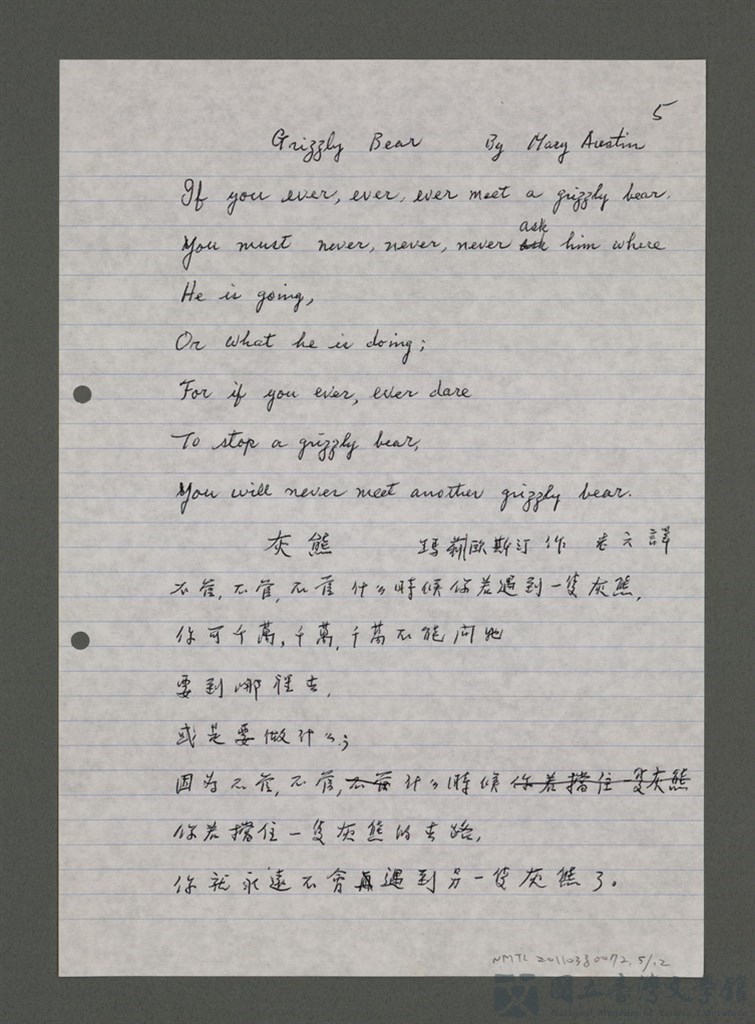 5
Grizzly Bear By Mary Austin
If you ever, ever, ever meet a grizzly bear.
You must never, never, never ask him where
He is going,
Or what he is doing;
For if you ever, ever dare
To stop a grizzly bear,
You will never meet another grizzly bear.
灰熊 瑪莉歐斯汀 作 譯
不管,不管,不管 什么時候你若遇到一隻灰熊,
你可千萬,千萬,千萬不能问他
要到哪裡去,
或是要做什么;
因为不管,不管,不管什么時候你若擋住一隻灰熊
你若擋住一隻灰熊的去路,
你就永遠不會再遇到另一隻灰熊了。
NMTL 20110330072.5/12
國立臺灣文學館
National Museum of Taiwan Literature